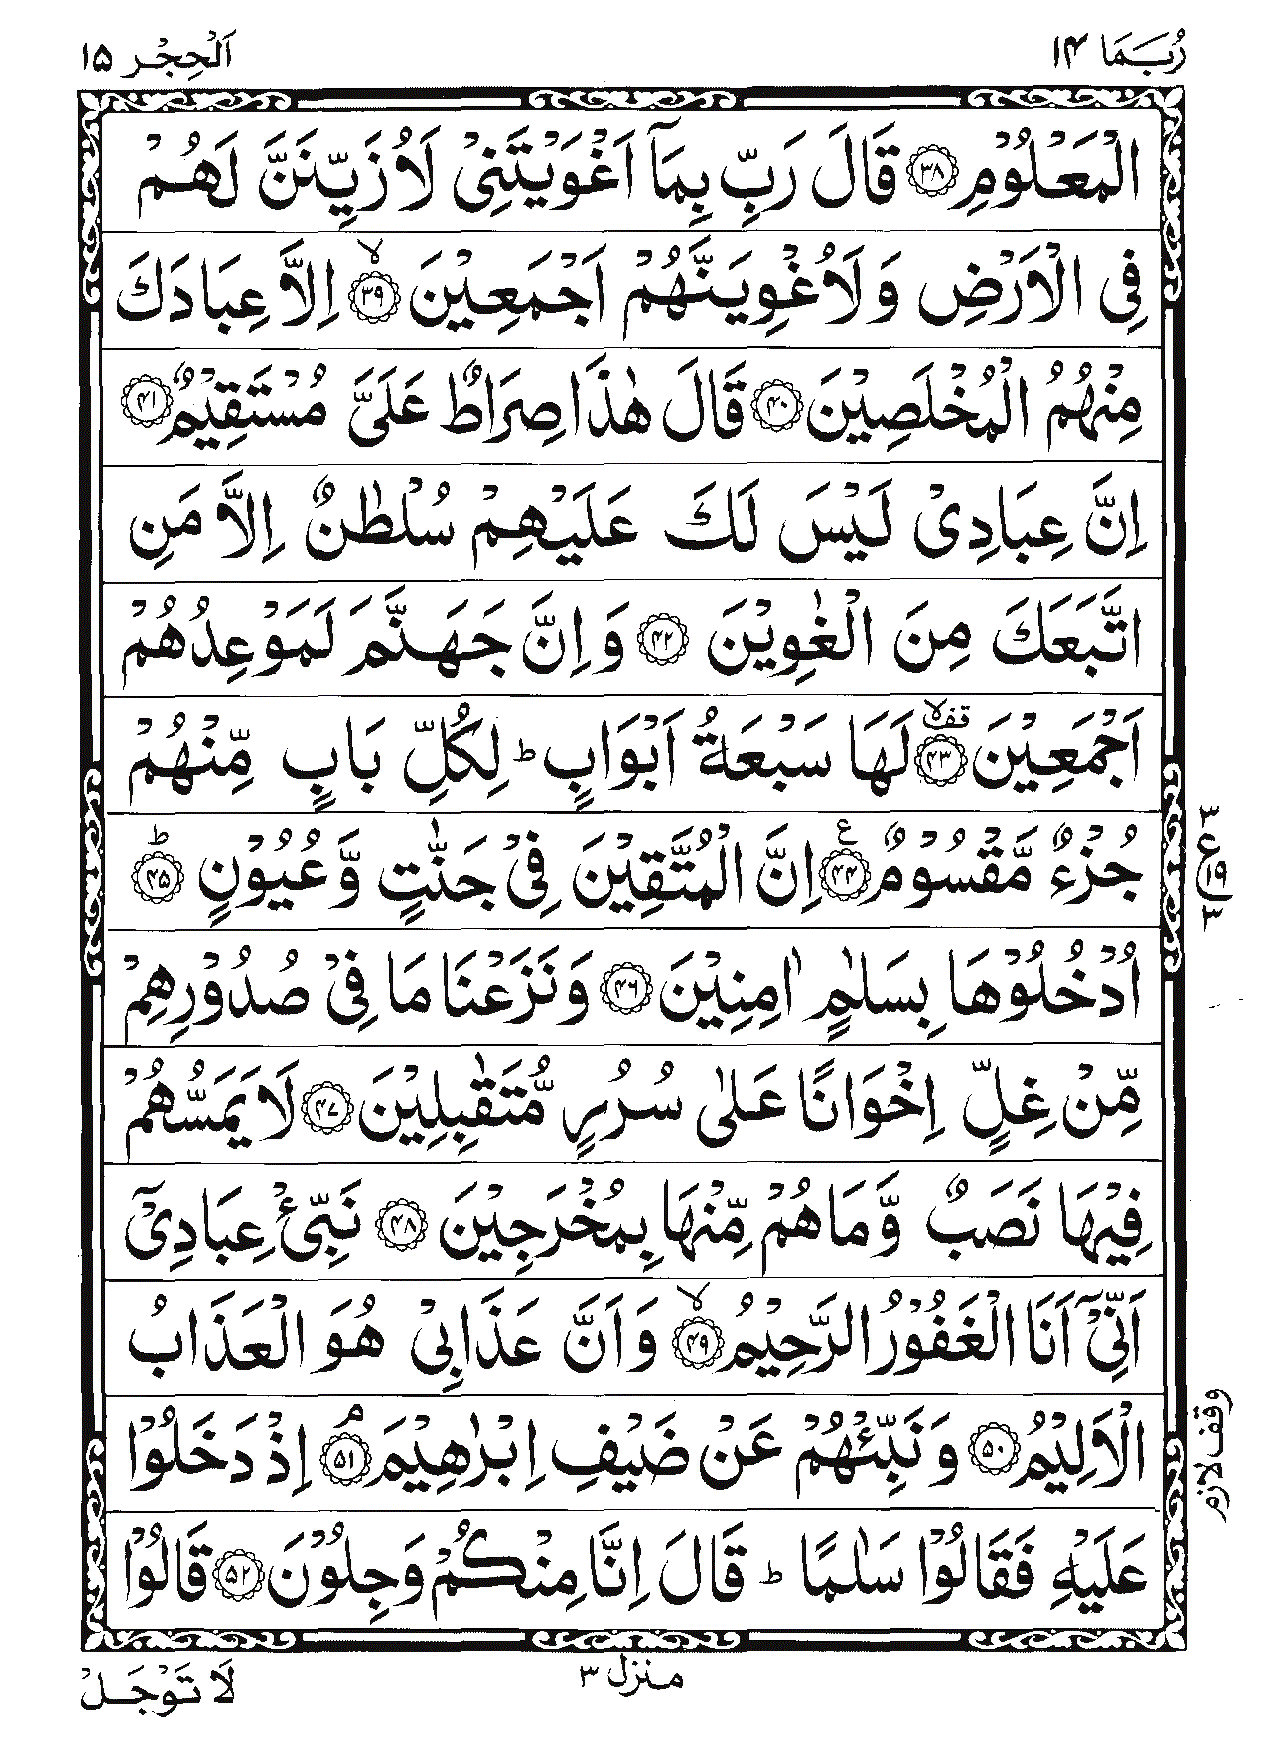 رُبَمَا ١٤
اَلْحِجْر ١٥
الْمَعْلُوْمِ ﴿٣٨﴾ قَالَ رَبِّ بِمَاۤ اَغْوَيْتَنِىْ لَاُزَيِّنَنَّ لَهُمْ
فِى الْاَرْضِ وَلَاُغْوِيَنَّهُمْ اَجْمَعِيْنَ ﴿٣٩﴾ ۙ اِلَّا عِبَادَكَ
مِنْهُمُ الْمُخْلَصِيْنَ ﴿٤٠﴾ قَالَ هٰذَا صِرَاطٌ عَلَىَّ مُسْتَقِيْمٌ ﴿٤١﴾
اِنَّ عِبَادِىْ لَيْسَ لَكَ عَلَيْهِمْ سُلْطٰنٌ اِلَّا مَنِ
اتَّبَعَكَ مِنَ الْغٰوِيْنَ ﴿٤٢﴾ وَاِنَّ جَهَنَّمَ لَمَوْعِدُهُمْ
اَجْمَعِيْنَ ﴿٤٣﴾ قف لا لَهَا سَبْعَةُ اَبْوَابٍ ؕ لِكُلِّ بَابٍ مِّنْهُمْ
جُزْءٌ مَّقْسُوْمٌ ﴿٤٤﴾ ع اِنَّ الْمُتَّقِيْنَ فِىْ جَنّٰتٍ وَّعُيُوْنٍ ﴿٤٥﴾ ؕ
٣ ع ١٩ ٣
اُدْخُلُوْهَا بِسَلٰمٍ اٰمِنِيْنَ ﴿٤٦﴾ وَنَزَعْنَا مَا فِىْ صُدُوْرِهِمْ
مِّنْ غِلٍّ اِخْوَانًا عَلٰى سُرُرٍ مُّتَقٰبِلِيْنَ ﴿٤٧﴾ لَا يَمَسُّهُمْ
فِيْهَا نَصَبٌ وَّمَا هُمْ مِّنْهَا بِمُخْرَجِيْنَ ﴿٤٨﴾ نَبِّئْ عِبَادِىْۤ
اَنِّىْۤ اَنَا الْغَفُوْرُ الرَّحِيْمُ ﴿٤٩﴾ ۙ وَاَنَّ عَذَابِىْ هُوَ الْعَذَابُ
الْاَلِيْمُ ﴿٥٠﴾ وَنَبِّئْهُمْ عَنْ ضَيْفِ اِبْرٰهِيْمَ ﴿٥١﴾ ۘ اِذْ دَخَلُوْا
وقف لازم
عَلَيْهِ فَقَالُوْا سَلٰمًا ؕ قَالَ اِنَّا مِنْكُمْ وَجِلُوْنَ ﴿٥٢﴾ قَالُوْا
منزل ٣
لَا تَوْجَلْ